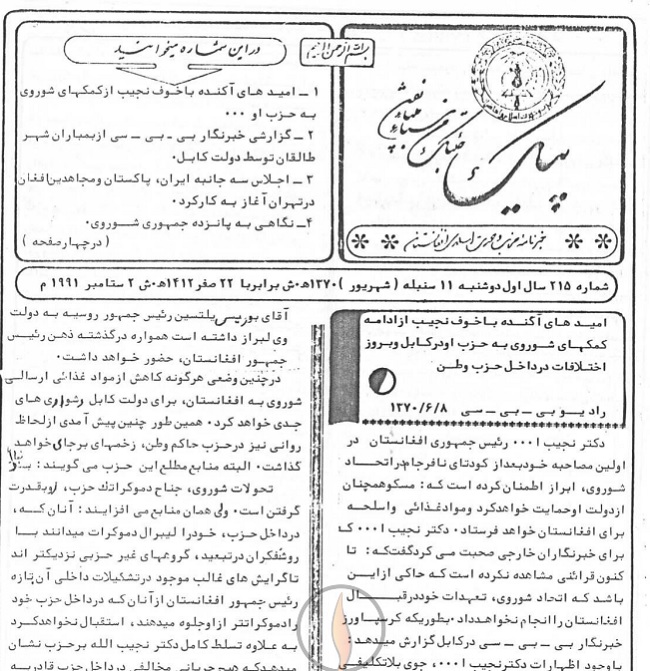 بسم الله الرحمن الرحیم
در این شماره میخوانید
۱ ــ امید های آکنده باخوف نجیب ازکمکهای شوروی
به حزب او ۰۰۰
۲ ــ گزارشی خبرنگار بی ـ بی ــ سی ازبمباران شهر
طالقان توسط دولت کابل۰
۳ ــ اجلاس سه جانبه ایران، پاکستان ومجاهدین افغان
درتهران آغاز به کارکرد۰
۴ــ نگاهی به پانزده جمهوری شوروی۰
( درچهارصفحه )
پیک
خبرنامه حزب وحدت اسلامی افغانستان
شماره ۲۱۵ سال اول دوشنبه ۱۱ سنبله ( شهریور ) ۱۳۷۰هـ۰ش برابربا ۲۲ صفر ۱۴۱۲هـ۰ش ۲ سپتامبر ۱۹۹۱ م
امید های آکنده باخوف نجیب ازادامه
کمکهای شوروی به حزب اودرکابل وبروز
اختلافات درداخل حزب وطن
رادیو بی ــ بی ــ سی ۱۳۷۰/۶/۸
دکتر نجیب ا۰۰۰ رئیس جمهوری افغانستان در
اولین مصاحبه خودبعداز کودتای نافرجام دراتحاد
شوروی، ابراز اطمنان کرده است که: مسکوهمچنان
ازدولت اوحمایت خواهدکرد وموادغذائی واسلحه
برای افغانستان خواهد فرستاد۰ دکتر نجیب ا۰۰۰ که
برای خبرنگاران خارجی صحبت می کردگفتکه: تا
کنون قرائنی مشاهده نکرده است که حاکی ازاین
باشد که اتحاد شوروی، تعهدات خوددرقبال
افغانستان راانجام نخواهدداد۰ بطوریکه
خبرنگار بی ــ بی ــ سی درکابل گزارش میدهد:
باوجود اظهارات دکترنجیب ا۰۰۰، جوی بلاتکلیفی
آقای بوریس یلتسین رئیس جمهور روسیه به دولت
وی ابراز داشته است همواره درگذشته ذهن رئیس
جمهور افغانستان، حضور خواهد داشت۰
درچنین وضعی هرگونه کاهش ازمواد غذائی ارسالی
شوروی به افغانستان، برای دولت کابل دشواری های
جدی خواهد کرد۰ همین طور چنین پیش آمدی ازلحاظ
روانی نیز درحزب حاکم وطن، زخمهای برجای خواهد
گذاشت۰ البته منابع مطلع این حزب می گویند:
تحولات شوروی، جناح دموکراتک حزب، اوبقدرت
گرفتن است۰ ولی همان منابع می افزایند: آنان که،
درداخل حزب، خودرا لیبرال دموکرات میدانند با
روشفکران درتبعید، گروههای غیر حزبی نزدیکتر اند
تاگرایش های غالب موجود درتشکیلات داخلی آن تازه
رئیس جمهور افغانستان ازآنان که درداخل حزب خود
رادموکراتتر ازاوجلوه میدهند، استقبال نخواهدکرد
به علاوه تسلط کامل دکتر نجیب الله برحزب نشان
میدهدکه هیچ جریانی مخالفی درداخل حزب قادربه